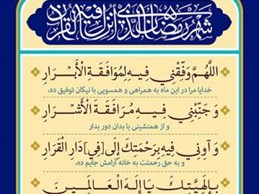 شهر رمضان الذی أنزل فیه القرآن
اللَّهُمَّ وَفِّقْنِي فِيهِ لِمُوَافَقَةِ الْأَبْرَارِ
خدایا مرا در این ماه به همراهی و همسویی با نیکان توفیق ده،
وَ جَنِّبْنِي فِيهِ مُرَافَقَةَ الْأَشْرَارِ
و از همنشینی با بدان دور بدار
وَ آوِنِي فِيهِ بِرَحْمَتِكَ إِلَى [فِي] دَارِ الْقَرَارِ
و به حق رحمتت به خانه آرامش جایم ده،
بِإِلَهِيَّتِكَ يَا إِلَهَ الْعَالَمِينَ